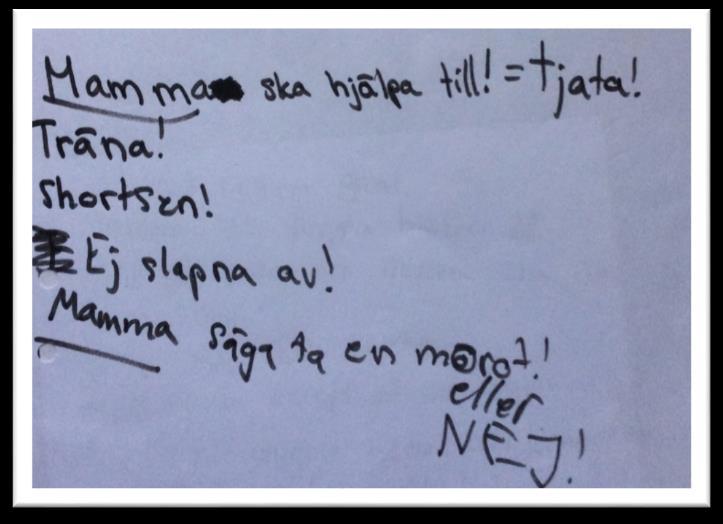 Mamma ska hjälpa till! = tjata!
Träna!
shortsen!
Ej slapna av!
Mamma säga ta en morot!
eller
NEJ!